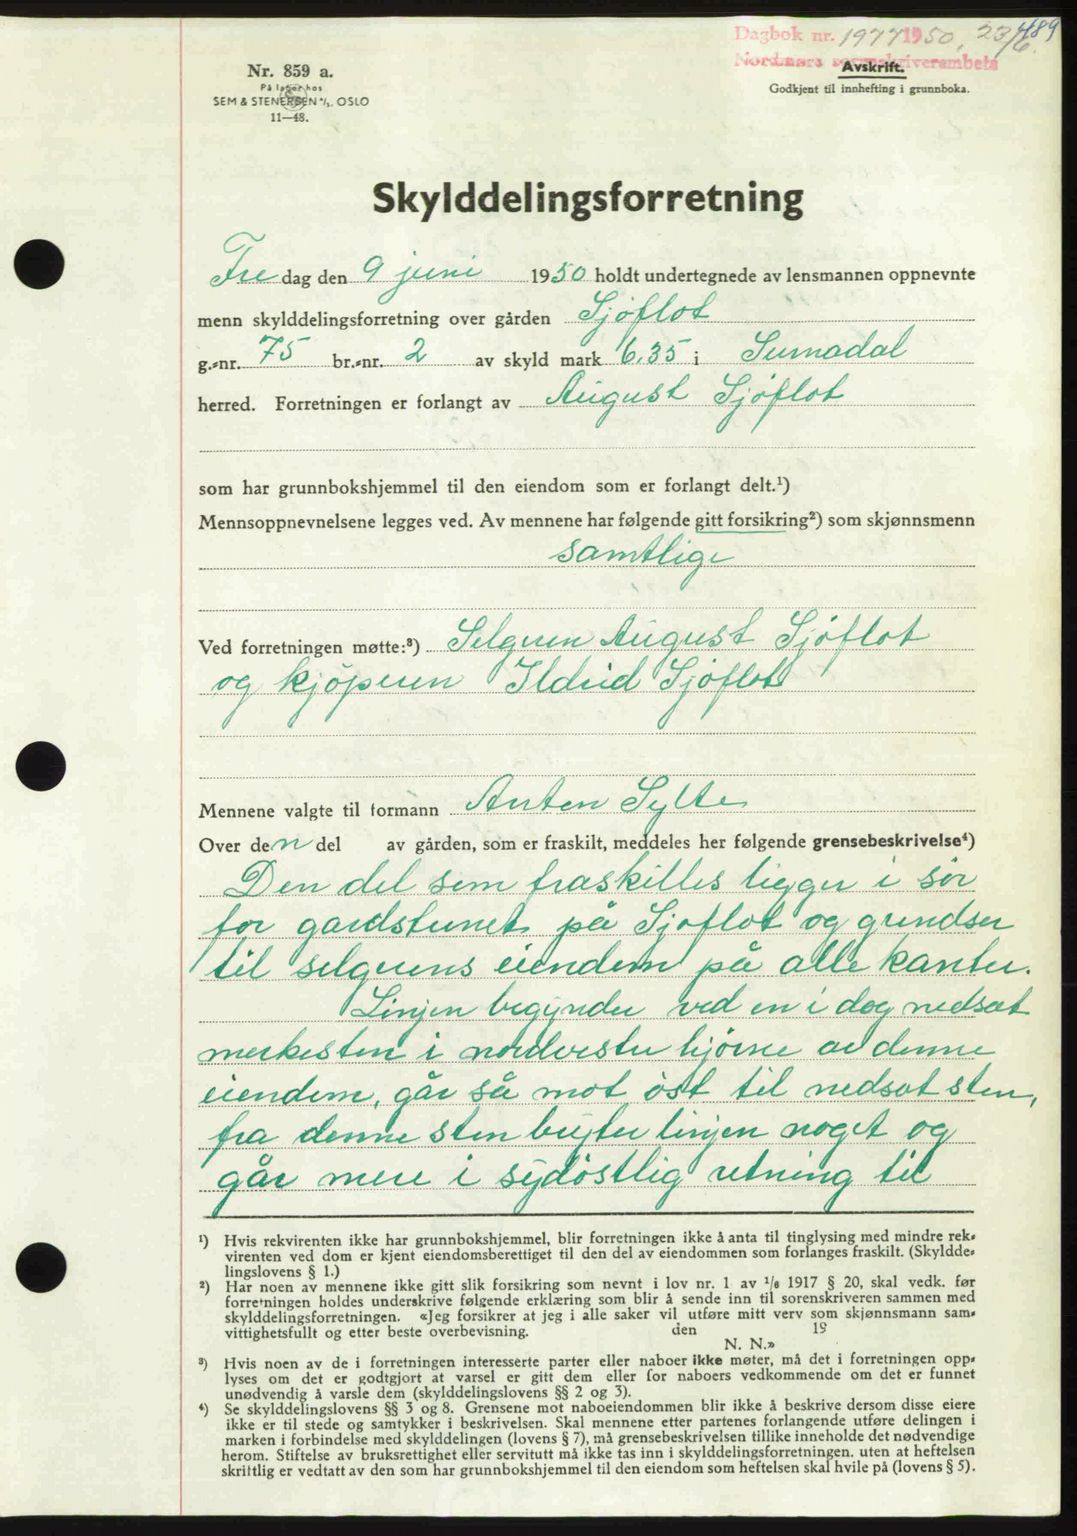 489
Dagbok nr. 1977 1950, 23/6
Nordmøre sorenskriverembete
Nr. 859 a.
På lager hos
SEM & STENERSEN A/S, OSLO
11—48.
Avskrift.
Godkjent til innhefting i grunnboka.
Skylddelingsforretning
Fredag den 9 juni 1950 holdt undertegnede av lensmannen oppnevnte
menn skylddelingsforretning over gården Sjøflot
g.-nr. 75 br.-nr. 2 av skyld mark 6.35 i Surnadal
herred. Forretningen er forlangt av August Sjøflot
som har grunnbokshjemmel til den eiendom som er forlangt delt.¹)
Mennsoppnevnelsene legges ved. Av mennene har følgende gitt forsikring²) som skjønnsmenn
samtlige
Ved forretningen møtte:³) Selgeren August Sjöflot
og kjöperen Ildrid Sjöflot
Mennene valgte til formann Anton Sylte
Over den del av gården, som er fraskilt, meddeles her følgende grensebeskrivelse⁴)
Den del som fraskilles ligger i sör
for gardstunet på Sjøflot og grendser
til selgerens eiendom på alle kanter.
Linjen begynder ved en i dag nedsat
merkesten i nordvestre hjörne av denne
eiendom, går så mot öst til nedsat sten,
fra denne sten bryter linjen noget og
går mere i sydöstlig retning til
¹) Hvis rekvirenten ikke har grunnbokshjemmel, blir forretningen ikke å anta til tinglysing med mindre rek-
virenten ved dom er kjent eiendomsberettiget til den del av eiendommen som forlanges fraskilt. (Skyldde-
lingslovens § 1.)
²) Har noen av mennene ikke gitt slik forsikring som nevnt i lov nr. 1 av 1/6 1917 § 20, skal vedk. før
forretningen holdes underskrive følgende erklæring som blir å sende inn til sorenskriveren sammen med
skylddelingsforretningen. «Jeg forsikrer at jeg i alle saker vil utføre mitt verv som skjønnsmann sam-
vittighetsfullt og etter beste overbevisning. den 19
N. N.»
³) Hvis noen av de i forretningen interesserte parter eller naboer ikke møter, må det i forretningen opp-
lyses om det er godtgjort at varsel er gitt dem eller for naboers vedkommende om det er funnet
unødvendig å varsle dem (skylddelingslovens §§ 2 og 3).
⁴) Se skylddelingslovens §§ 3 og 8. Grensene mot naboeiendommen blir ikke å beskrive dersom disse eiere
ikke er til stede og samtykker i beskrivelsen. Skal mennene etter partenes forlangende utføre delingen i
marken i forbindelse med skylddelingen (lovens § 7), må grensebeskrivelsen tillike inneholde det nødvendige
herom. Stiftelse av bruksrettighet eller servitutt må ikke tas inn i skylddelingsforretningen, uten at heftelsen
skriftlig er vedtatt av den som har grunnbokshjemmel til den eiendom som heftelsen skal hvile på (lovens § 5).